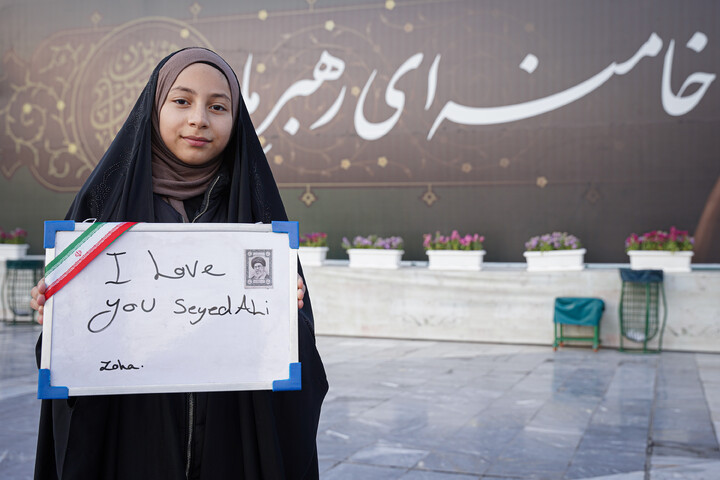 خامنه‌ای رهبر ما
I Love
you SeyedALi
Zoha.